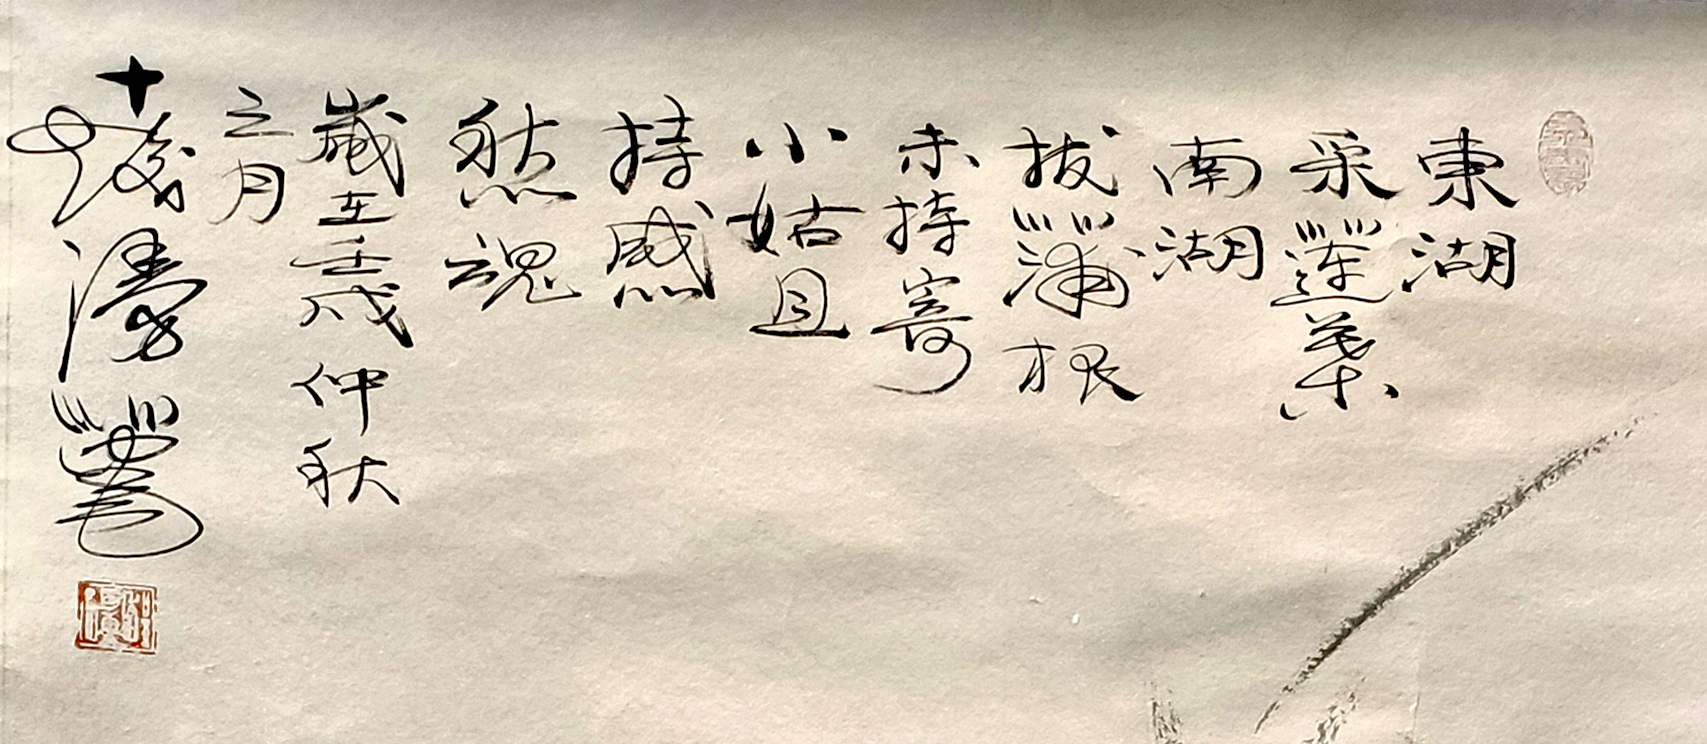 東湖
采蓮葉
南湖
拔蒲根
未持寄
小姑且
持感
愁魂
歲在壬戌仲秋
之月